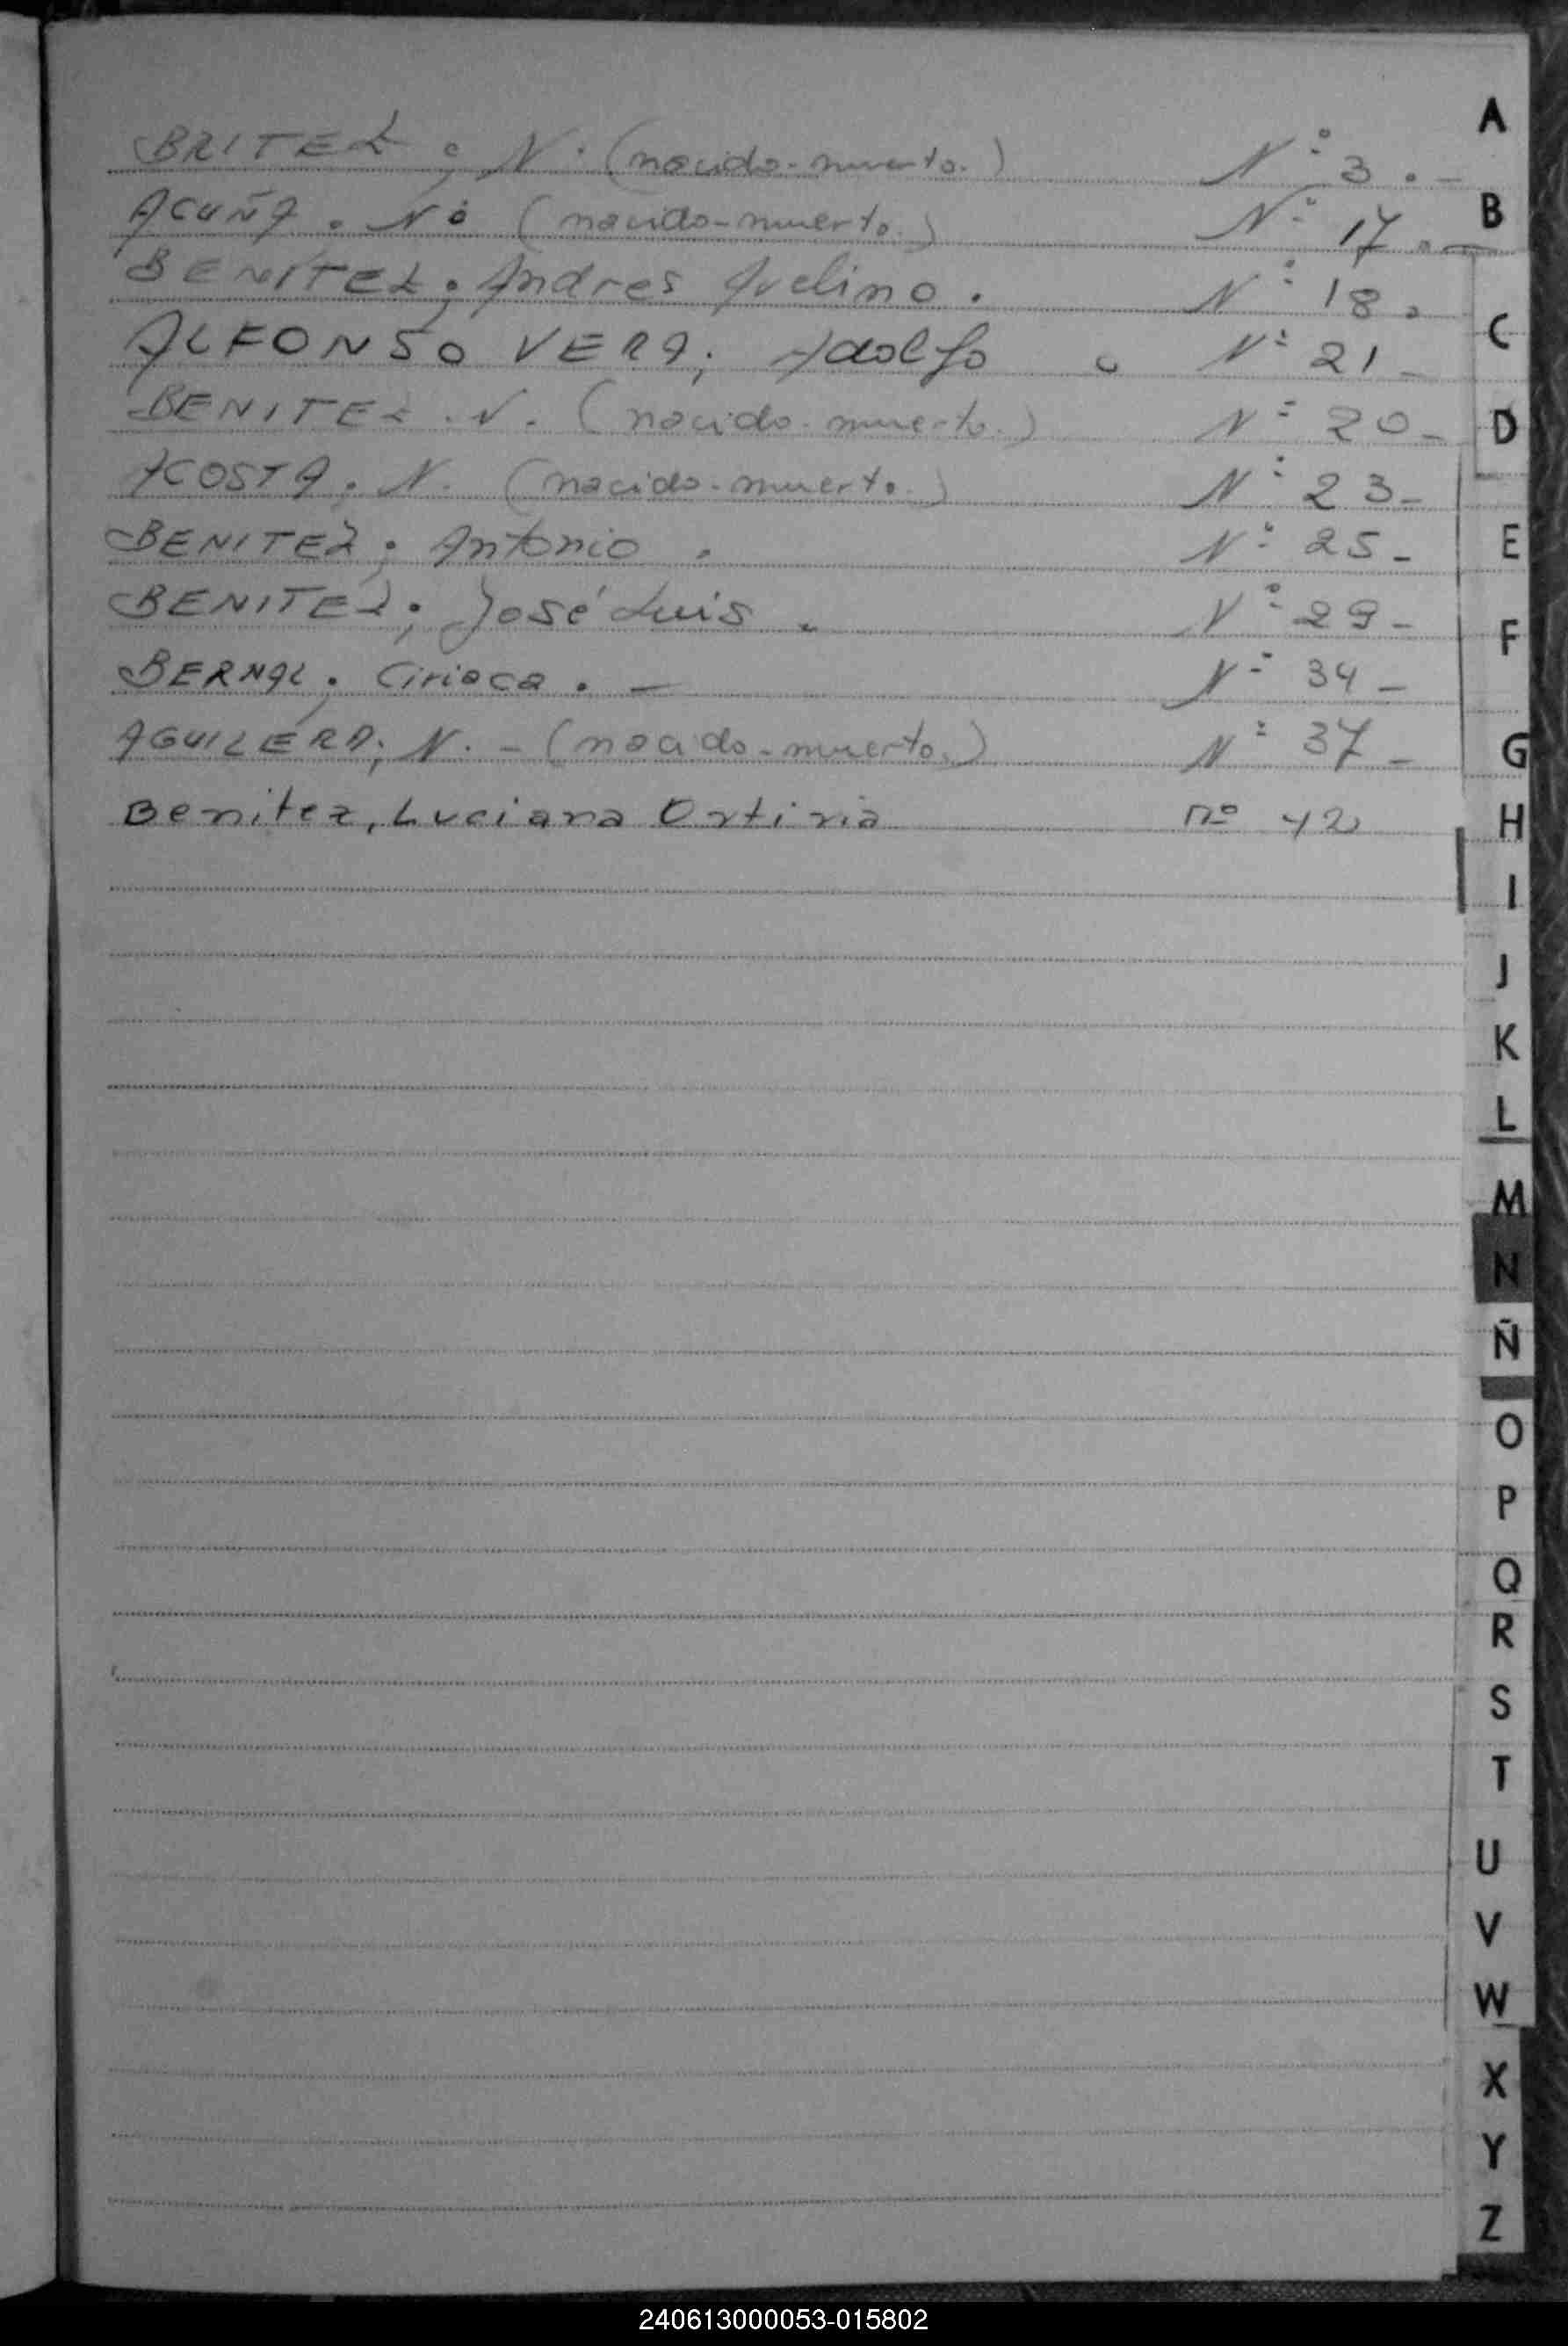 BRITEZ; N. (nacido-muerto.) Nº 3.-
ACUÑA. N. (nacido-muerto.) Nº 17.-
BENITEZ; Andres Avelino. Nº 18.
ALFONSO VERA; Adolfo. Nº 21-
BENITEZ. N. (nacido-muerto.) Nº 20-
ACOSTA. N. (nacido-muerto.) Nº 23-
BENITEZ; Antonio. Nº 25-
BENITEZ; José Luis. Nº 29-
BERNAL; Ciriaca.- Nº 34-
AGUILERA; N.- (nacido-muerto.) Nº 37-
Benitez, Luciana nº 42
A
B
C
D
E
F
G
H
I
J
K
L
M
N
Ñ
O
P
Q
R
S
T
U
V
W
X
Y
Z
240613000053-015802